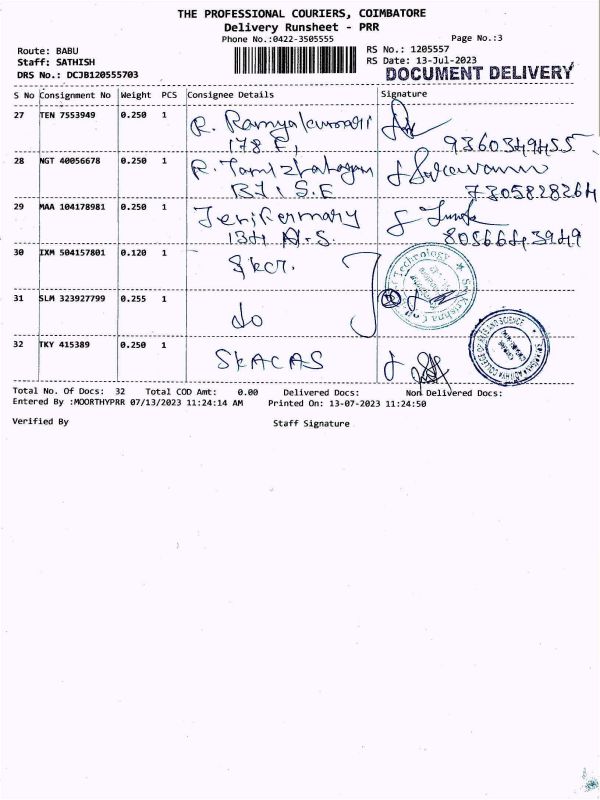 THE PROFESSIONAL COURIERS, COIMBATORE
Delivery Runsheet - PRR
Phone No.:0422-3505555
Page No.:3
Route: BABU
RS No.: 1205557
Staff: SATHISH
RS Date: 13-Jul-2023
DRS No.: DCJB120555703
DOCUMENT DELIVERY
S No Consignment No Weight PCS Consignee Details Signature
27 TEN 7553949 0.250 1 R. Ramyakumari
178 E, 9360349455
28 NGT 40056678 0.250 1 R. Tamizhahagan
B7, S.E 7305828264
29 MAA 104178981 0.250 1 Jenifermary
134 A.S. 8056643949
30 IXM 504157801 0.120 1 Skcr.
Technology
Sri Krishna
31 SLM 323927799 0.255 1 do
32 TKY 415389 0.250 1 SKACAS
COLLEGE OF ARTS AND SCIENCE
Total No. Of Docs: 32 Total COD Amt: 0.00 Delivered Docs: Non Delivered Docs:
Entered By :MOORTHYPRR 07/13/2023 11:24:14 AM Printed On: 13-07-2023 11:24:50
Verified By Staff Signature